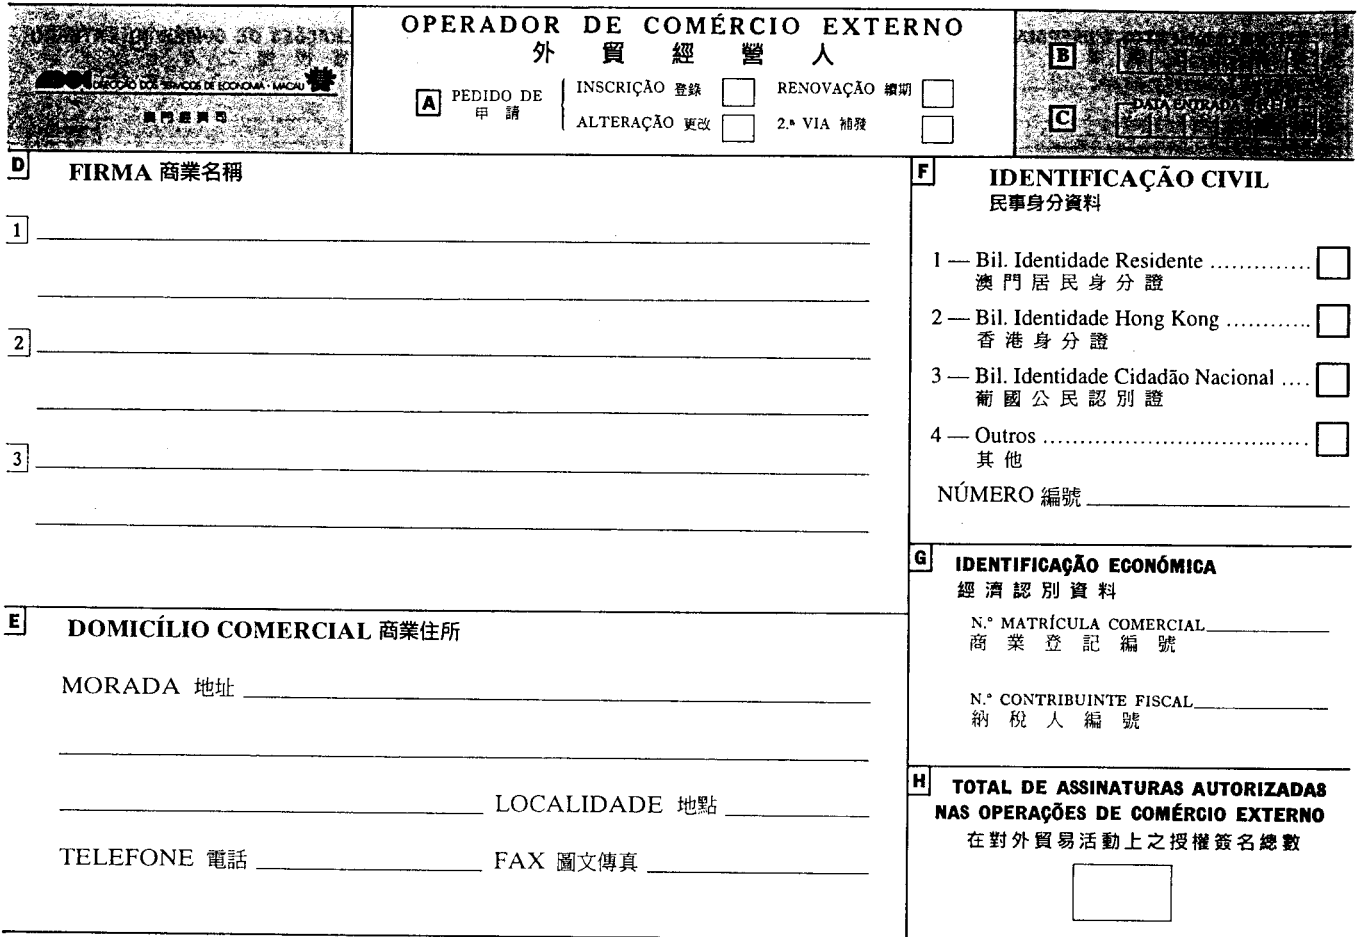 OPERADOR DE COMÉRCIO EXTERNO
外貿經營人
DIRECÇÃO DOS SERVIÇOS DE ECONOMIA - MACAU
澳門經濟司
A PEDIDO DE
申請
INSCRIÇÃO 登錄
RENOVAÇÃO 續期
ALTERAÇÃO 更改
2.ª VIA 補發
B
C
DATA ENTRADA
D FIRMA 商業名稱
1
2
3
E DOMICÍLIO COMERCIAL 商業住所
MORADA 地址
LOCALIDADE 地點
TELEFONE 電話
FAX 圖文傳真
F IDENTIFICAÇÃO CIVIL
民事身分資料
1 — Bil. Identidade Residente
澳門居民身分證
2 — Bil. Identidade Hong Kong
香港身分證
3 — Bil. Identidade Cidadão Nacional
葡國公民認別證
4 — Outros
其他
NÚMERO 編號
G IDENTIFICAÇÃO ECONÓMICA
經濟認別資料
N.º MATRÍCULA COMERCIAL
商業登記編號
N.º CONTRIBUINTE FISCAL
納稅人編號
H TOTAL DE ASSINATURAS AUTORIZADAS
NAS OPERAÇÕES DE COMÉRCIO EXTERNO
在對外貿易活動上之授權簽名總數